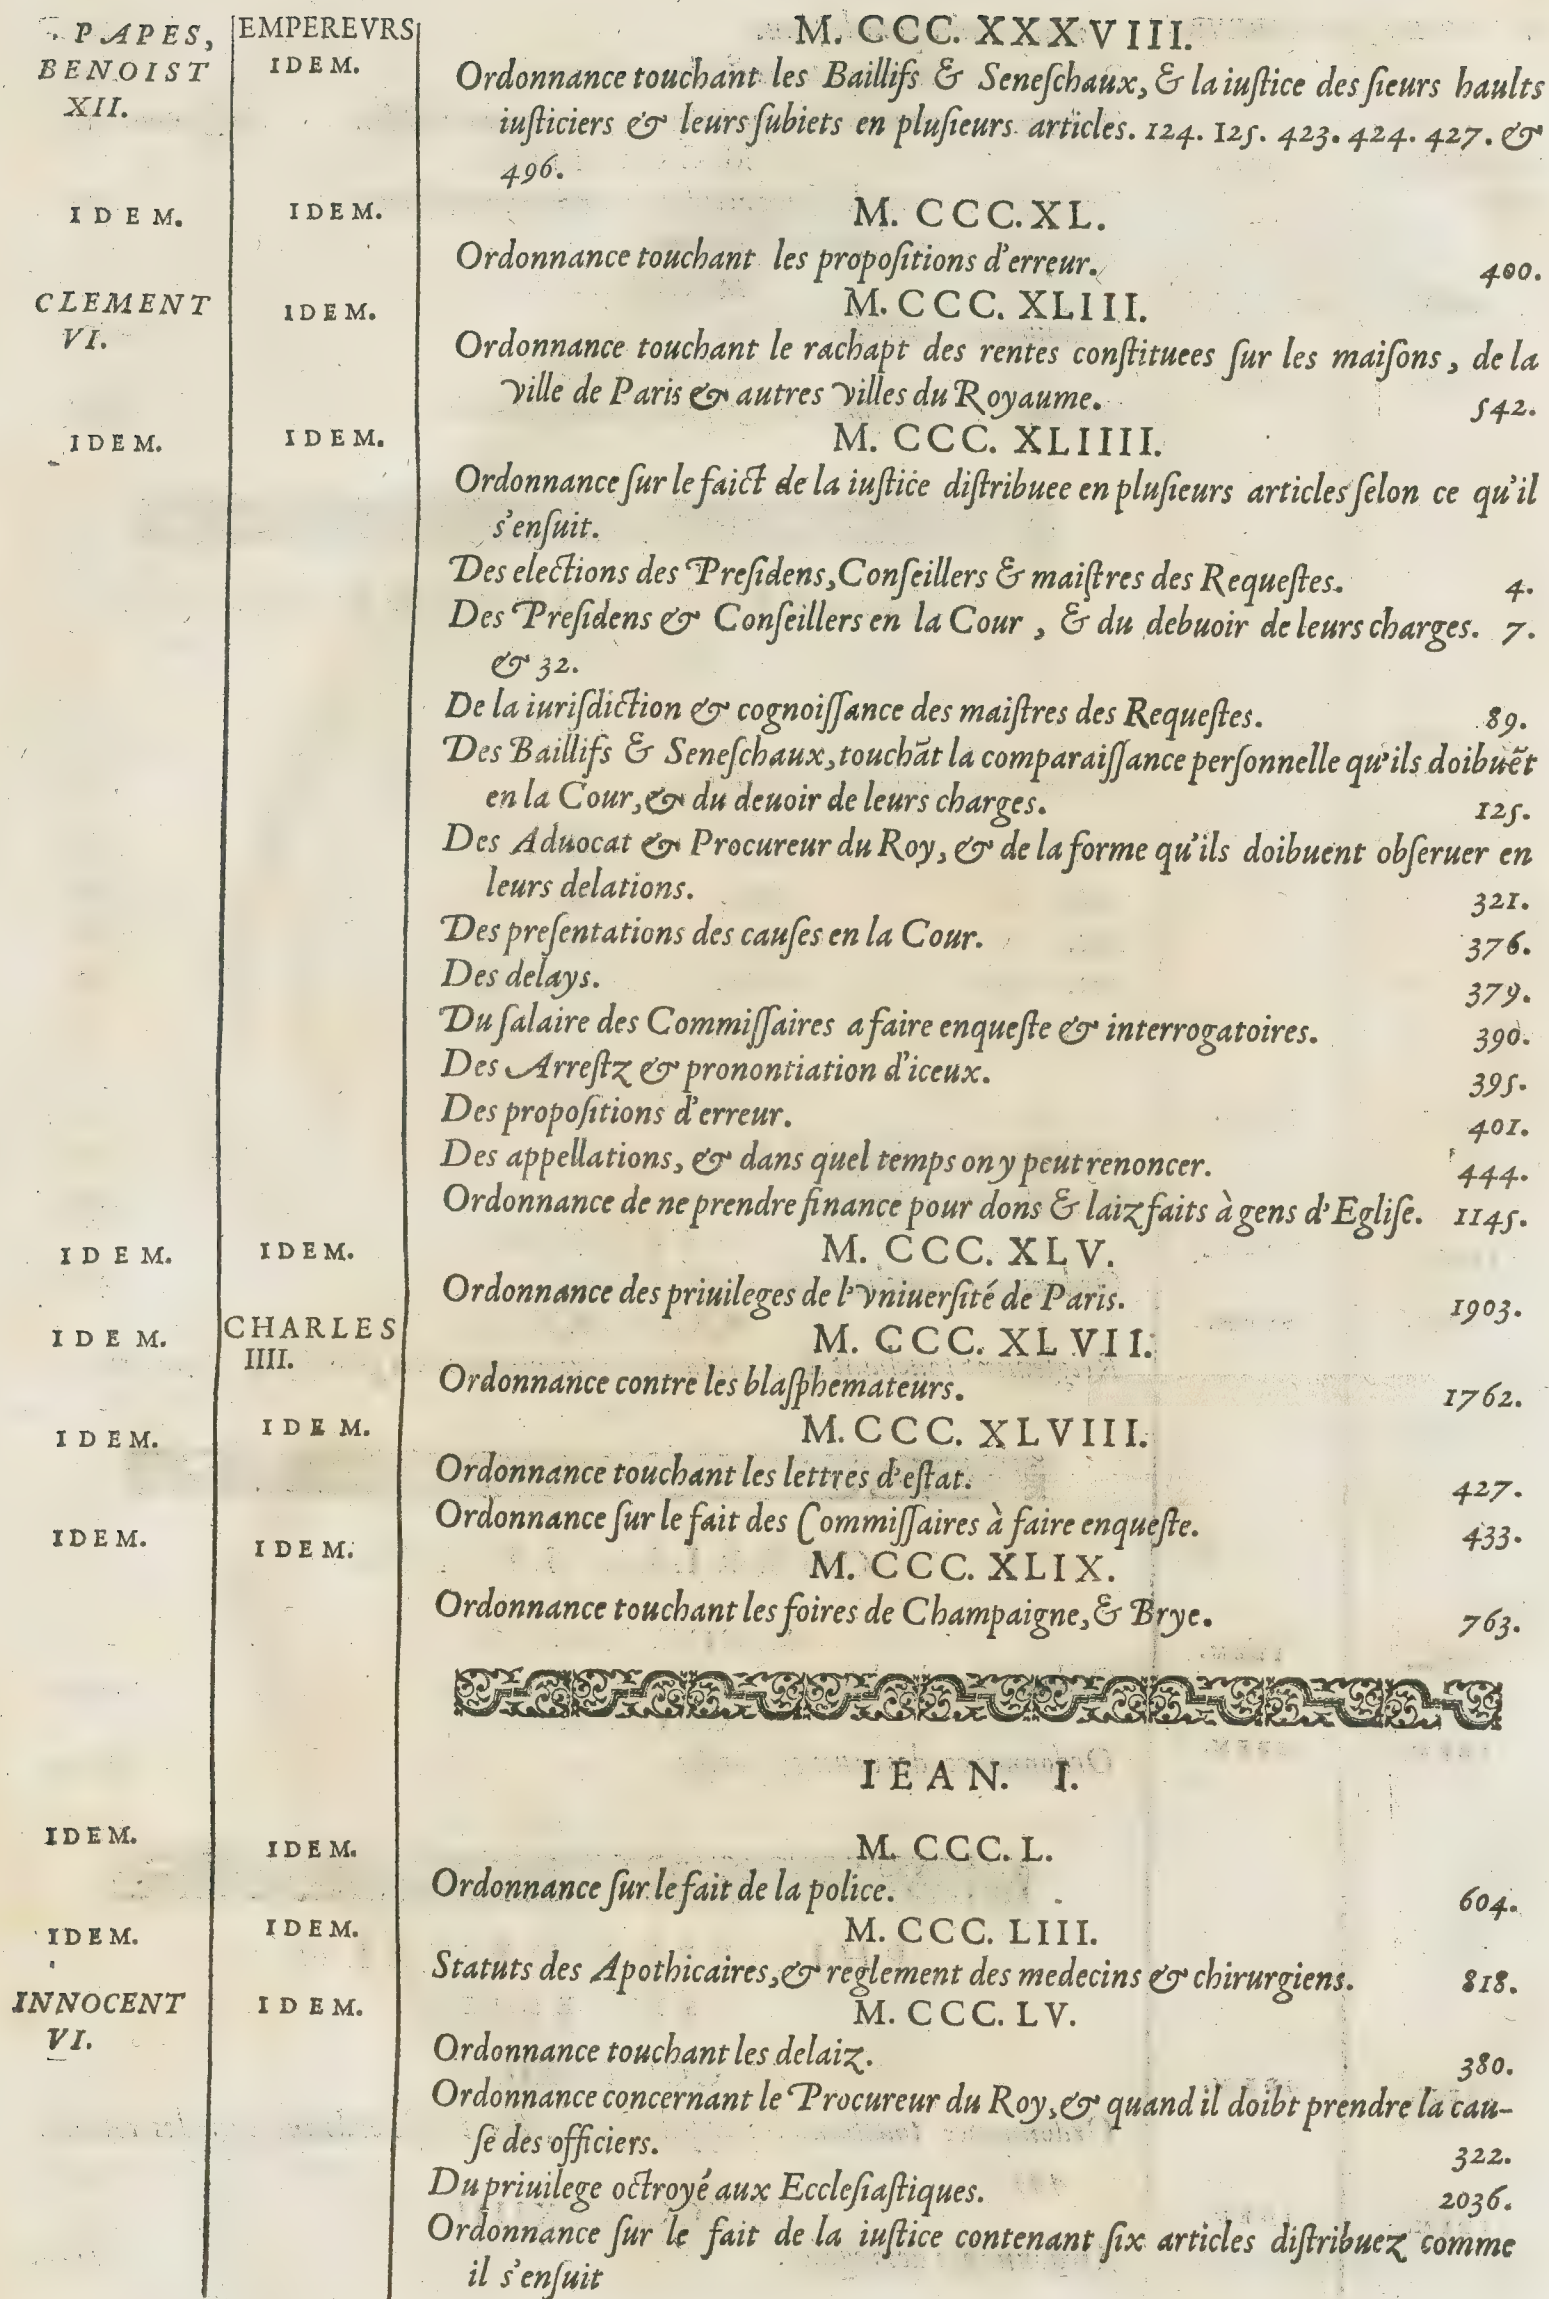 PAPES, EMPEREVRS M. CCC. XXXVIII.
BENOIST IDEM.
XII.
Ordonnance touchant les Baillifs & Seneſchaux, & la iuſtice des ſieurs haults
iuſticiers & leurs ſubiets en pluſieurs articles. 124. 125. 423. 424. 427. &
496.
IDEM. IDEM. M. CCC. XL.
Ordonnance touchant les propoſitions d'erreur. 400.
CLEMENT IDEM. M. CCC. XLIII.
VI.
Ordonnance touchant le rachapt des rentes conſtituees ſur les maiſons, de la
ville de Paris & autres villes du Royaume. 542.
IDEM. IDEM. M. CCC. XLIIII.
Ordonnance ſur le faict de la iuſtice diſtribuee en pluſieurs articles ſelon ce qu'il
s'enſuit.
Des elections des Preſidens, Conſeillers & maiſtres des Requeſtes. 4.
Des Preſidens & Conſeillers en la Cour, & du debuoir de leurs charges. 7.
& 32.
De la iuriſdiction & cognoiſſance des maiſtres des Requeſtes. 89.
Des Baillifs & Seneſchaux, touchãt la comparaiſſance perſonnelle qu'ils doibuẽt
en la Cour, & du deuoir de leurs charges. 125.
Des Aduocat & Procureur du Roy, & de la forme qu'ils doibuent obſeruer en
leurs delations. 321.
Des preſentations des cauſes en la Cour. 376.
Des delays. 379.
Du ſalaire des Commiſſaires a faire enqueſte & interrogatoires. 390.
Des Arreſtz & pronontiation d'iceux. 395.
Des propoſitions d'erreur. 401.
Des appellations, & dans quel temps on y peut renoncer. 444.
Ordonnance de ne prendre finance pour dons & laiz faits à gens d'Egliſe. 1145.
IDEM. IDEM. M. CCC. XLV.
Ordonnance des priuileges de l'vniuerſité de Paris. 1903.
IDEM. CHARLES M. CCC. XLVII.
IIII.
Ordonnance contre les blaſphemateurs. 1762.
IDEM. IDEM. M. CCC. XLVIII.
Ordonnance touchant les lettres d'eſtat. 427.
Ordonnance ſur le fait des Commiſſaires à faire enqueſte. 433.
IDEM. IDEM. M. CCC. XLIX.
Ordonnance touchant les foires de Champaigne, & Brye. 763.
IEAN. I.
IDEM. IDEM. M. CCC. L.
Ordonnance ſur le fait de la police. 604.
IDEM. IDEM. M. CCC. LIII.
Statuts des Apothicaires, & reglement des medecins & chirurgiens. 818.
INNOCENT IDEM. M. CCC. LV.
VI.
Ordonnance touchant les delaiz. 380.
Ordonnance concernant le Procureur du Roy, & quand il doibt prendre la cau-
ſe des officiers. 322.
Du priuilege octroyé aux Eccleſiaſtiques. 2036.
Ordonnance ſur le fait de la iuſtice contenant ſix articles diſtribuez comme
il s'enſuit